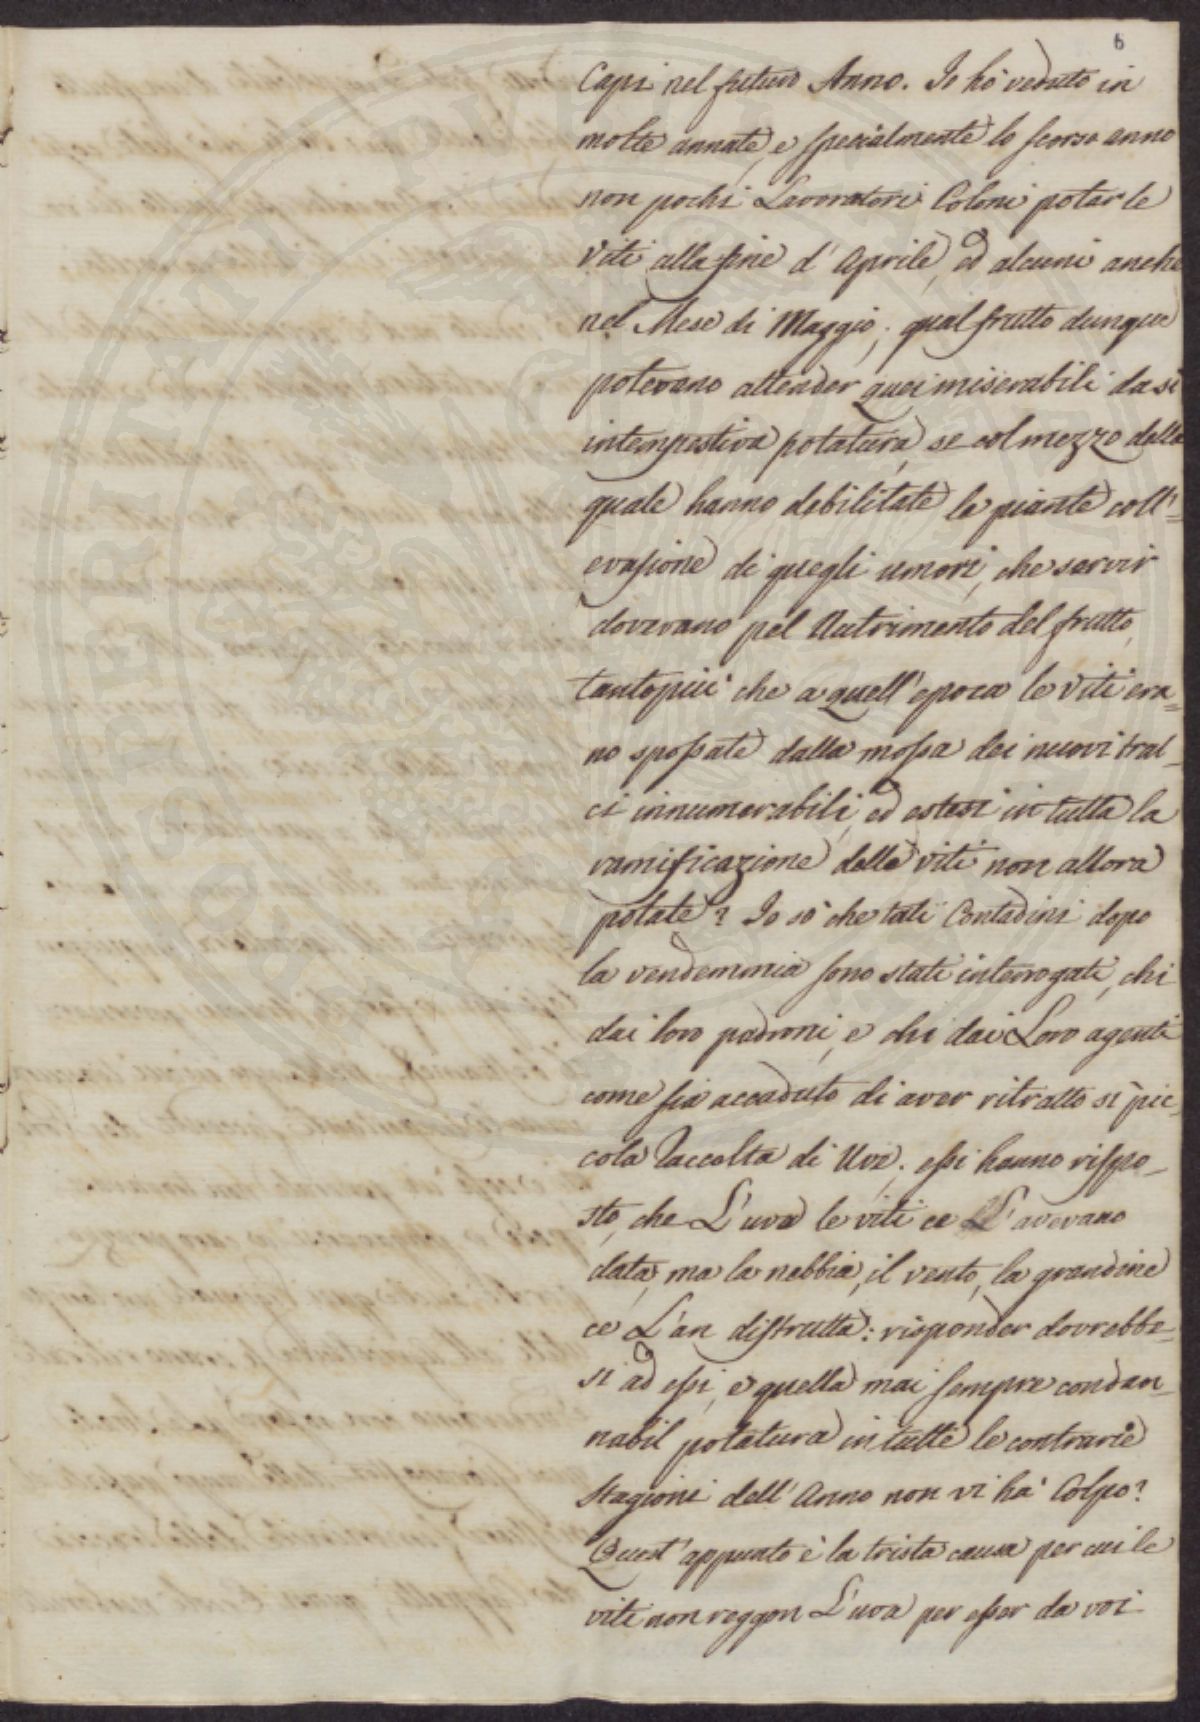 6
Capi nel futuro Anno. Io ho veduto in
molte annate, e specialmente lo scorso anno
non pochi Lavoratori Coloni potar le
Viti alla fine d'Aprile, ed alcuni anche
nel Mese di Maggio; qual frutto dunque
potevano attender quei miserabili da sì
intempestiva potatura, se col mezzo della
quale hanno debilitate le piante coll'=
evasione di quegli umori, che servir
dovevano pel Nutrimento del frutto,
tantopiù che a quell'epoca le Viti era=
no spossate dalla mossa dei nuovi tral=
ci innumerabili, ed estesi in tutta la
ramificazione delle viti non allora
potate? Io sò che tali Contadini dopo
la vendemmia sono stati interrogati, chi
dai loro padroni, e chi dai Loro agenti
come sia accaduto di aver ritratto sì pic=
cola Raccolta di Uve; essi hanno rispo=
sto, che L'uva le viti ce L'avevano
data, ma la nebbia, il vento, la grandine
ce L'an distrutta: risponder dovrebbe=
si ad essi, e quella mai sempre condan=
nabil potatura in tutte le contrarie
Stagioni dell'Anno non vi hà Colpo?
Quest'appunto è la trista causa per cui le
viti non reggon L'uva per esser da voi